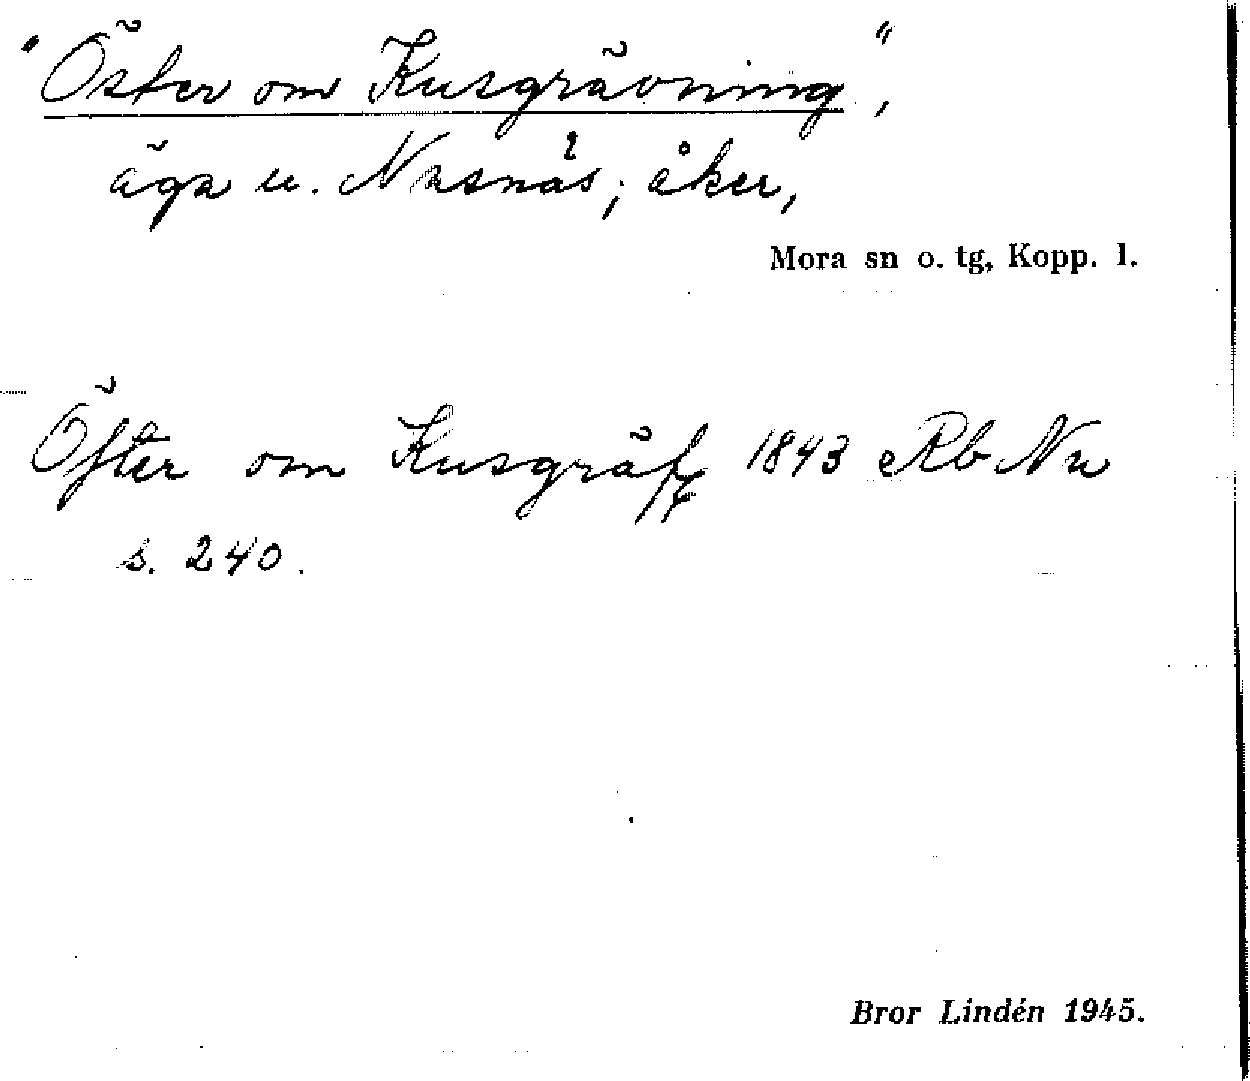 "Öster om Kusgrävning",
äga u. Nusnäs; åker,
Mora sn o. tg, Kopp. l.
Öfter om Kusgräfg 1843 Rb Nu
s. 240.
Bror Lindén 1945.